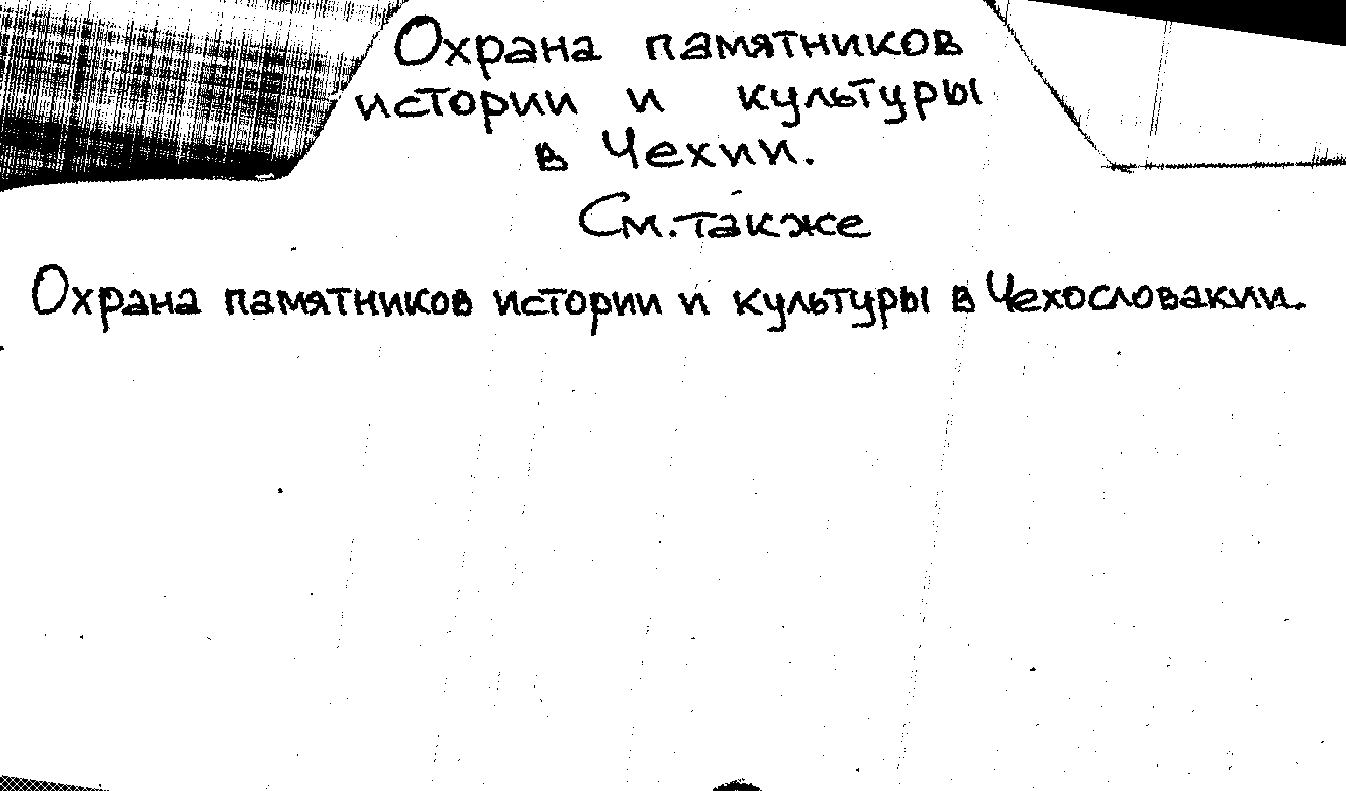 Охрана памятников
истории и культуры
в Чехии.
См. также
Охрана памятников истории и культуры в Чехословакии.